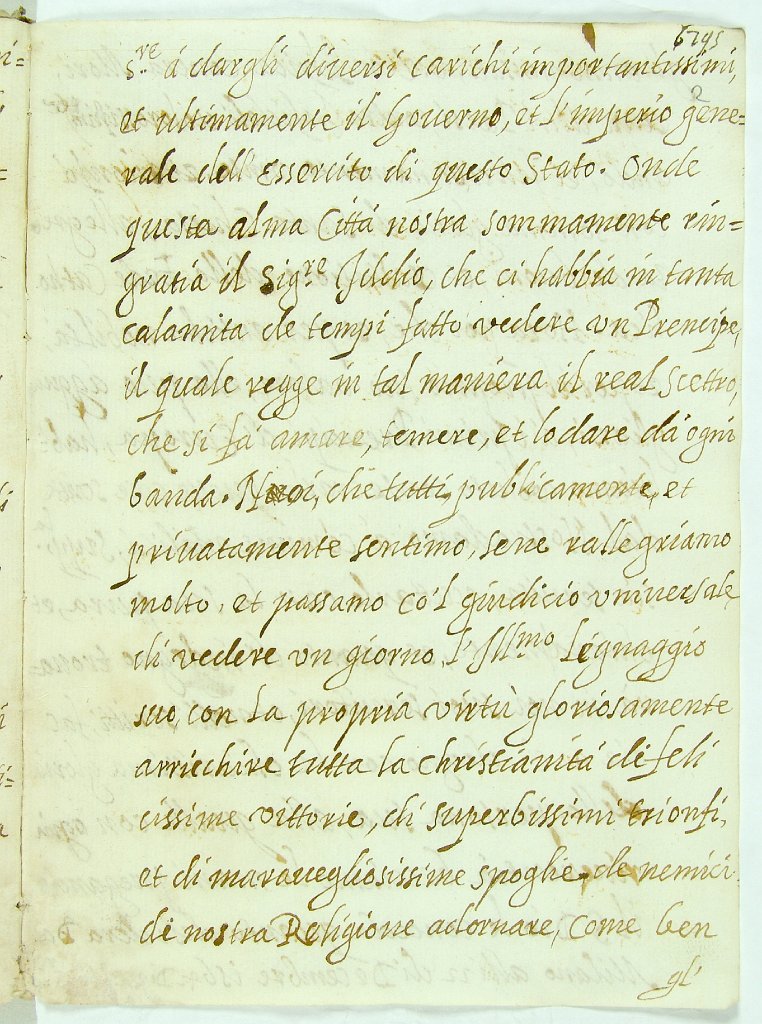 6295
2
S.re á dargli diversi carichi importantissimi,
et ultimamente il Governo, et l'imperio gene=
rale dell'Essercito di questo Stato. Onde
questa alma Cittá nostra sommamente rin=
gratia il Sig.re Iddio, che ci habbia in tanta
calamita de tempi fatto vedere un Prencipe,
il quale regge in tal maniera il real Scettro,
che si fá amare, temere, et lodare da ogni
banda. Noi, che tutti, publicamente, et
privatamente sentimo, sene rallegriamo
molto, et passamo co'l giudicio universale,
di vedere un giorno l'Ill.mo Legnaggio
suo, con la propria virtù gloriosamente
arricchire tutta la Christianitá di feli
cissime vittorie, di superbissimi trionfi,
et di maravegliosissime spoglie, de nemici
di nostra Religione adornare, come ben
gl'